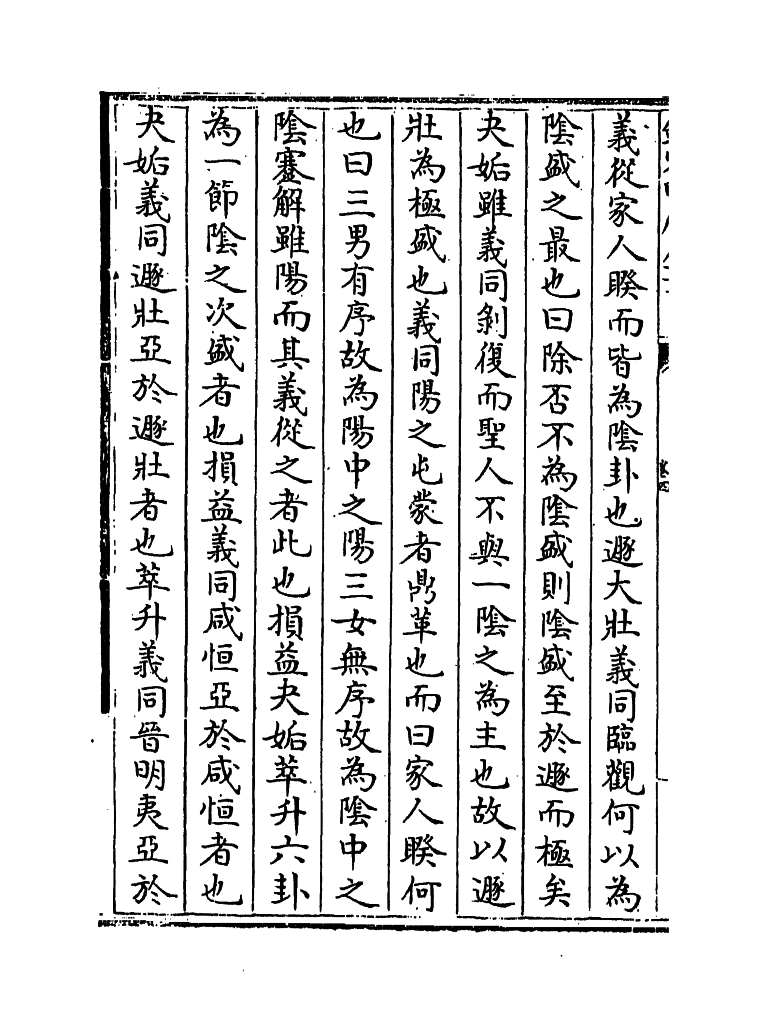 義從家人睽而皆為陰卦也遯大壯義同臨觀何以為
陰盛之最也曰除否不為陰盛則陰盛至於遯而極矣
夬姤雖義同剝復而聖人不與一陰之為主也故以遯
壯為極盛也義同陽之屯蒙者鼎革也而曰家人睽何
也曰三男有序故為陽中之陽三女無序故為陰中之
陰蹇解雖陽而其義從之者此也損益夬姤萃升六卦
為一節陰之次盛者也損益義同咸恒亞於咸恒者也
夬姤義同遯壯亞於遯壯者也萃升義同晉明夷亞於